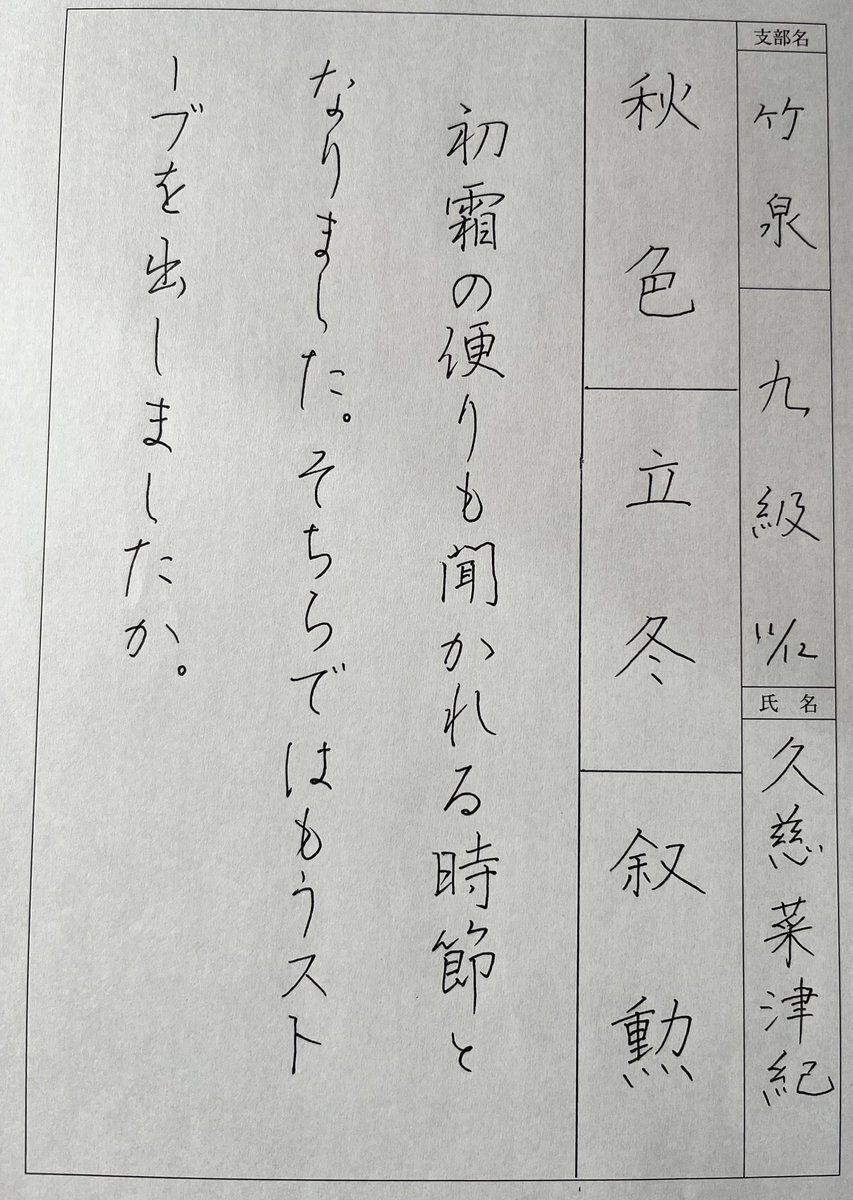 支部名
竹泉
九級
11/12
氏名
久慈菜津紀
秋色
立冬
叙勲
初霜の便りも聞かれる時節と
なりました。そちらではもうスト
ーブを出しましたか。